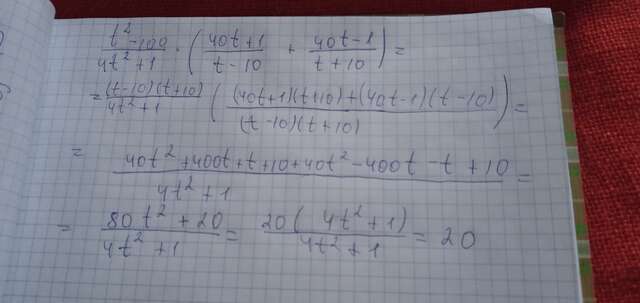 (t²-100)/(4t²+1) · ((40t+1)/(t-10) + (40t-1)/(t+10)) =
= (t-10)(t+10)/(4t²+1) (((40t+1)(t+10)+(40t-1)(t-10))/((t-10)(t+10))) =
= (40t²+400t+t+10+40t²-400t-t+10)/(4t²+1) =
= (80t²+20)/(4t²+1) = 20(4t²+1)/(4t²+1) = 20